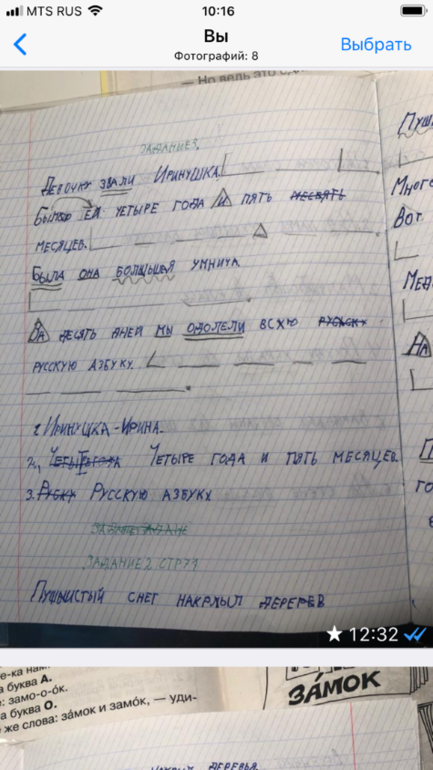 MTS RUS 10:16
Вы
Фотографий: 8
Выбрать
— Но ведь это
ЗАДАНИЕ 1.
ДЕВОЧКУ ЗВАЛИ ИРИНУШКА.
БЫЛО ЕЙ ЧЕТЫРЕ ГОДА И ПЯТЬ
МЕСЯЦЕВ.
БЫЛА ОНА БОЛЬШАЯ УМНИЧА
ЗА ДЕСЯТЬ ДНЕЙ МЫ ОДОЛЕЛИ ВСХЮ
РУССКУЮ АЗБУКУ
1. ИРИНУШКА-ИРИНА.
2. ЧЕТЫРЕ ГОДА И ПЯТЬ МЕСЯЦЕВ.
3. РУССКУЮ АЗБУКУ
ЗАДАНИЕ 2 СТР 73
ПУШЫСТЫЙ СНЕГ НАКРХЫЛ ДЕРЕРЕВ
ПУШ
МНОГО
ВОТ
МЕД
НА
П
ГО
12:32
е-ка
а буква А.
: замо-о-о́к.
а буква О.
же слова: за́мок и замо́к, — уди-
ЗА́МОК
ДЕРЕВЬЯ